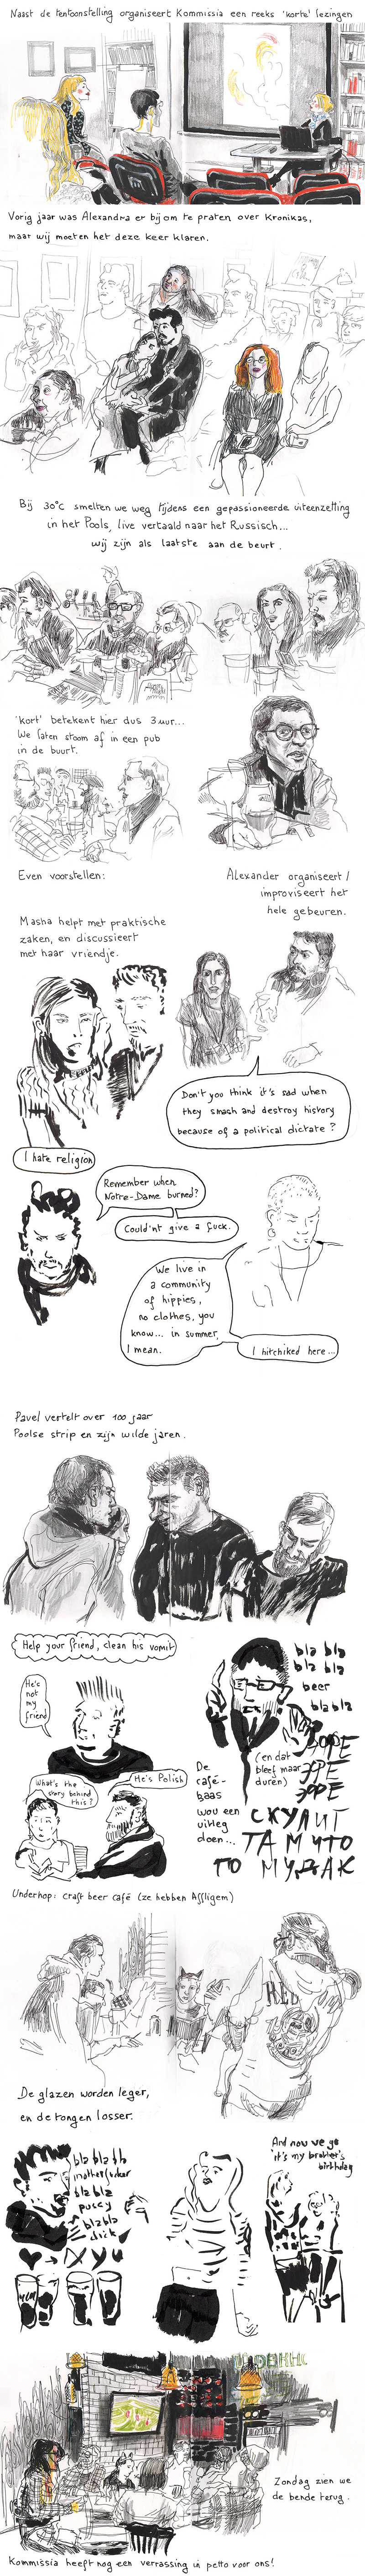 Naast de tentoonstelling organiseert Kommissia een reeks 'korte' lezingen
Vorig jaar was Alexandra er bij om te praten over Kronikas,
maar wij moeten het deze keer klaren.
Bij 30°C smelten we weg tijdens een gepassioneerde uiteenzetting
in het Pools, live vertaald naar het Russisch...
wij zijn als laatste aan de beurt.
'kort' betekent hier dus 3 uur...
We laten stoom af in een pub
in de buurt.
Even voorstellen:
Alexander organiseert/
improviseert het
hele gebeuren.
Masha helpt met praktische
zaken, en discussieert
met haar vriendje.
Don't you think it's sad when
they smash and destroy history
because of a political dictate?
I hate religion
Remember when
Notre-Dame burned?
Could'nt give a fuck.
We live in
a community
of hippies,
no clothes, you
know... in summer,
I mean.
I hitchiked here...
Pavel vertelt over 100 jaar
Poolse strip en zijn wilde jaren.
Help your friend, clean his vomit
He's
not
my
friend
What's the
story behind
this?
He's Polish
bla bla
bla bla
beer
bla bla
(en dat
bleef maar
duren)
De
café-
baas
wou een
uitleg
doen...
Underhop: craft beer café (ze hebben Affligem)
RED
De glazen worden leger,
en de tongen losser.
bla bla bla
motherfucker
bla bla
pussy
bla bla
dick
And now we go
it's my brother's
birthday
Zondag zien we
de bende terug.
Kommissia heeft nog een verrassing in petto voor ons!